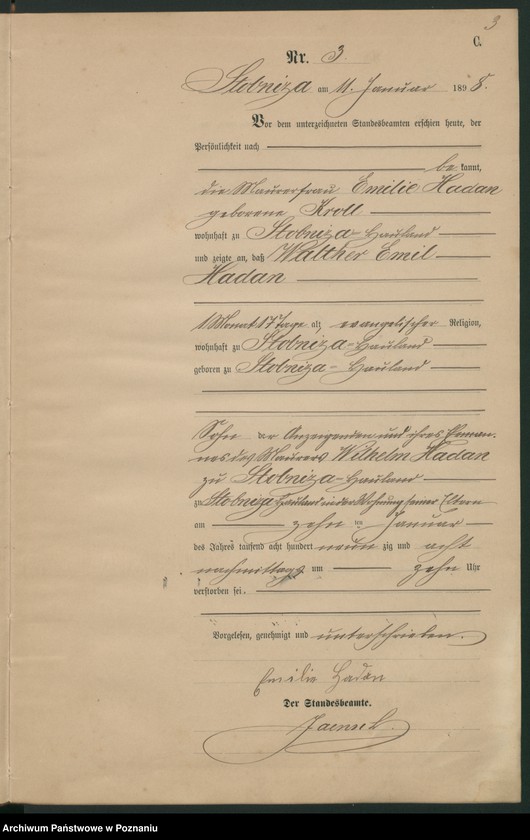 3
C.
Nr. 3
Stobniza am 11. Januar 1898.
Vor dem unterzeichneten Standesbeamten erschien heute, der
Persönlichkeit nach
be kannt,
die Maurerfrau Emilie Hadan
geborene Kroll
wohnhaft zu Stobniza-Hauland
und zeigte an, daß Walther Emil
Hadan
1 Monat 17 Tage alt, evangelischer Religion,
wohnhaft zu Stobniza-Hauland
geboren zu Stobniza-Hauland
Sohn der Anzeigenden und ihres Eheman-
nes des Maurers Wilhelm Hadan
zu Stobniza-Hauland
zu Stobniza Hauland in der Wohnung seiner Eltern
am zehn ten Januar
des Jahres tausend acht hundert neun zig und acht
nachmittags um zehn Uhr
verstorben sei.
Vorgelesen, genehmigt und unterschrieben.
Emilie Hadan
Der Standesbeamte.
Jaensch.
Archiwum Państwowe w Poznaniu